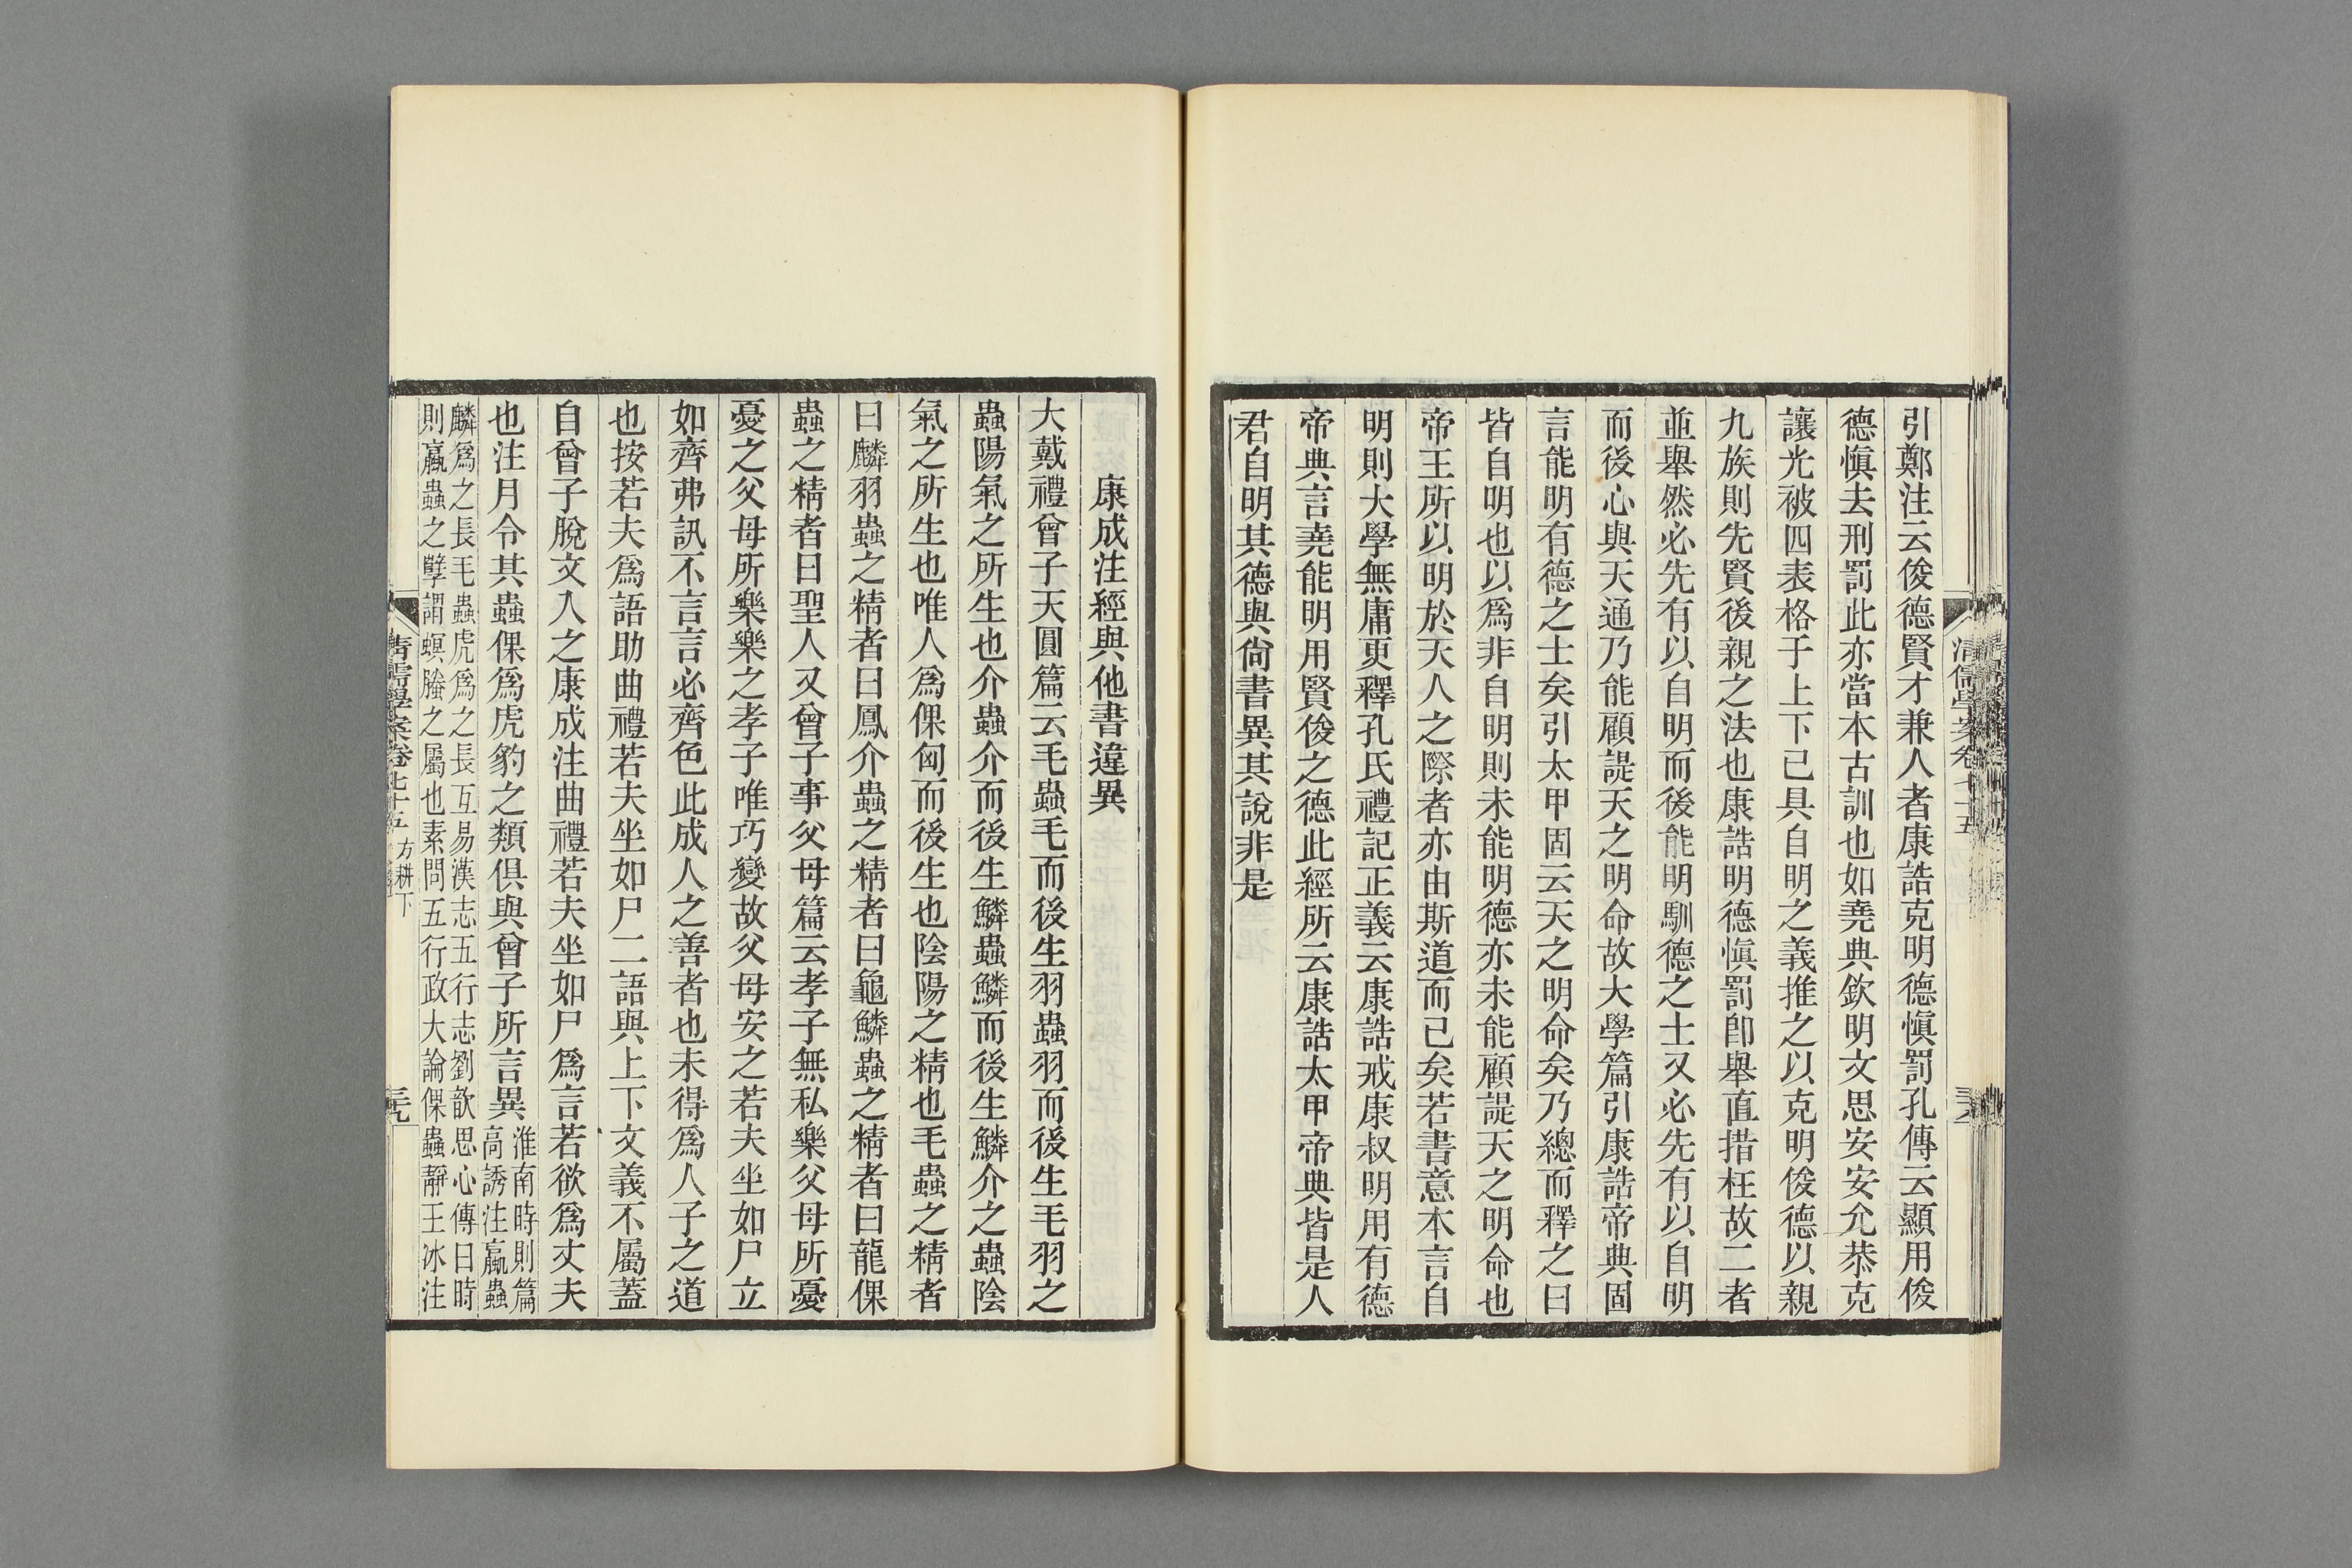 引鄭注云俊德賢才兼人者康誥克明德愼罰孔傳云顯用俊
德愼去刑罰此亦當本古訓也如堯典欽明文思安安允恭克
讓光被四表格于上下已具自明之義推之以克明俊德以親
九族則先賢後親之法也康誥明德愼罰卽舉直措枉故二者
並舉然必先有以自明而後能明馴德之士又必先有以自明
而後心與天通乃能顧諟天之明命故大學篇引康誥帝典固
言能明有德之士矣引太甲固云天之明命矣乃總而釋之曰
皆自明也以爲非自明則未能明德亦未能顧諟天之明命也
帝王所以明於天人之際者亦由斯道而已矣若書意本言自
明則大學無庸更釋孔氏禮記正義云康誥戒康叔明用有德
帝典言堯能明用賢俊之德此經所云康誥太甲帝典皆是人
君自明其德與尙書異其說非是
清儒學案卷七十五
康成注經與他書違異
大戴禮曾子天圓篇云毛蟲毛而後生羽蟲羽而後生毛羽之
蟲陽氣之所生也介蟲介而後生鱗蟲鱗而後生鱗介之蟲陰
氣之所生也唯人爲倮匈而後生也陰陽之精也毛蟲之精者
曰麟羽蟲之精者曰鳳介蟲之精者曰龜鱗蟲之精者曰龍倮
蟲之精者曰聖人又曾子事父母篇云孝子無私樂父母所憂
憂之父母所樂樂之孝子唯巧變故父母安之若夫坐如尸立
如齊弗訊不言言必齊色此成人之善者也未得爲人子之道
也按若夫爲語助曲禮若夫坐如尸二語與上下文義不屬蓋
自曾子脫文入之康成注曲禮若夫坐如尸爲言若欲爲丈夫
也注月令其蟲倮爲虎豹之類俱與曾子所言異
淮南時則篇
高誘注蠃蟲
麟爲之長毛蟲虎爲之長互易漢志五行志劉歆思心傳曰時
則蠃蟲之孽謂螟螣之屬也素問五行政大論倮蟲靜王冰注
清儒學案卷七十五 方耕下
三九